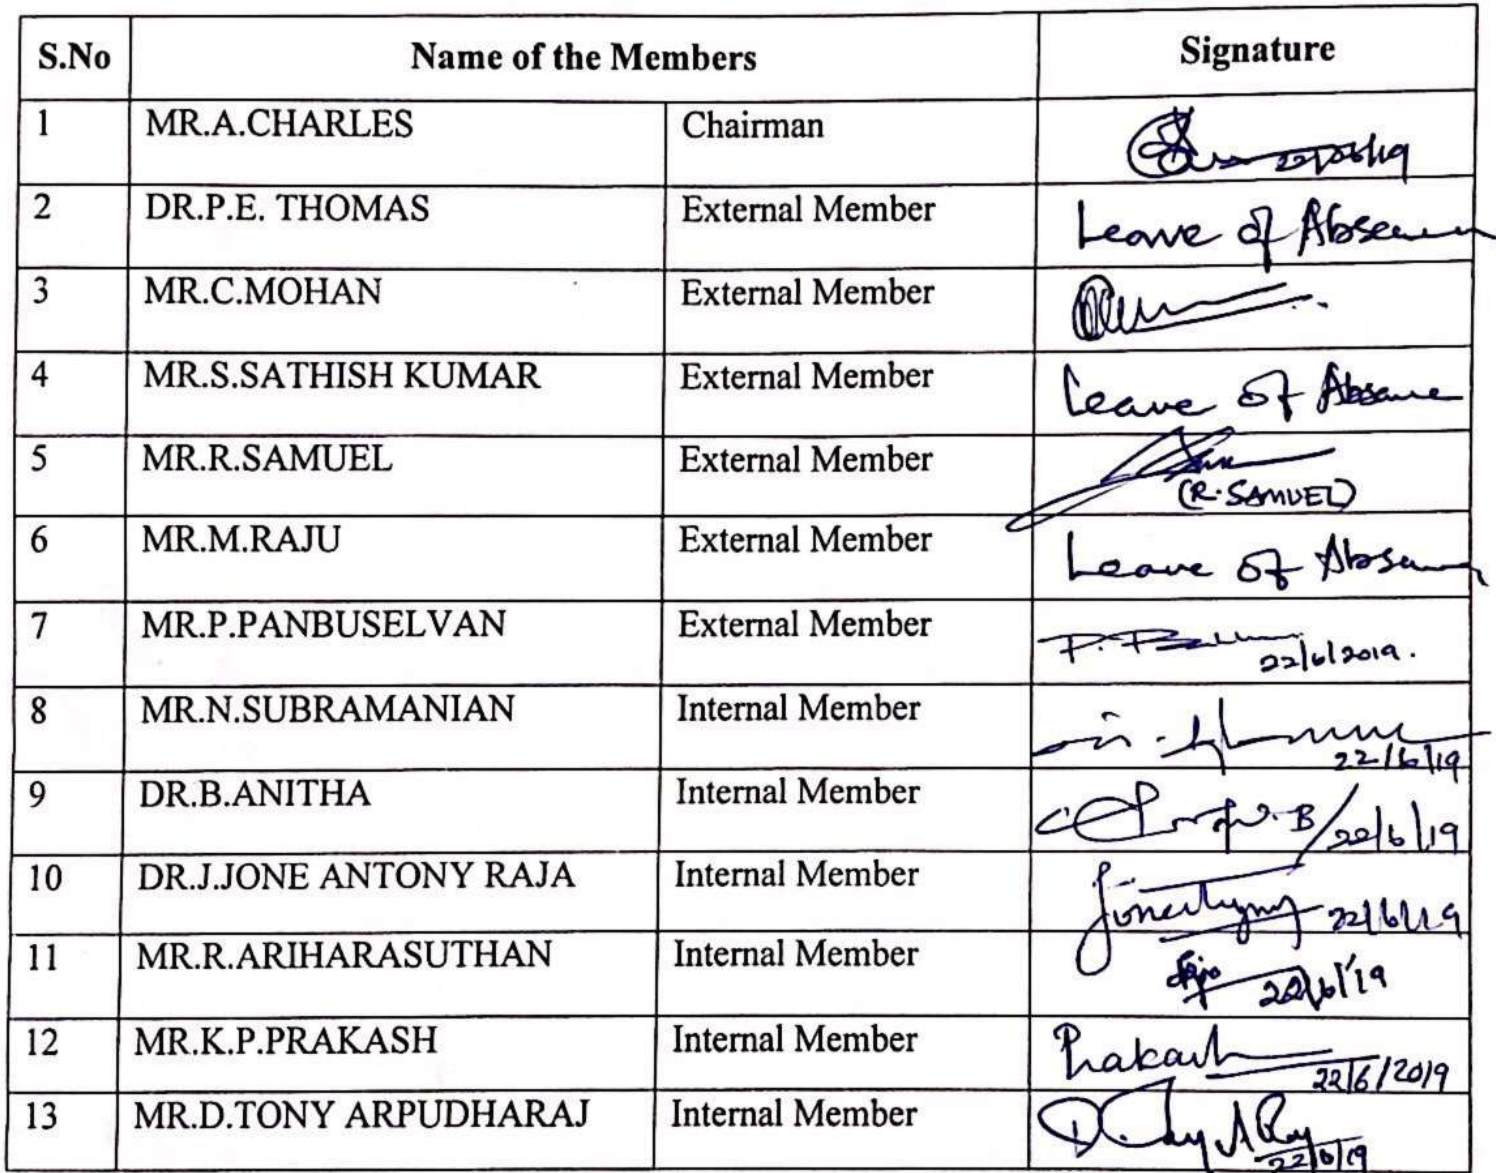 S.No Name of the Members Signature
1 MR.A.CHARLES Chairman 22/06/19
2 DR.P.E. THOMAS External Member Leave of Absence
3 MR.C.MOHAN External Member
4 MR.S.SATHISH KUMAR External Member Leave of Absence
5 MR.R.SAMUEL External Member
(R.SAMUEL)
6 MR.M.RAJU External Member Leave of Absence
7 MR.P.PANBUSELVAN External Member
22/6/2019.
8 MR.N.SUBRAMANIAN Internal Member
22/6/19
9 DR.B.ANITHA Internal Member 22/6/19
10 DR.J.JONE ANTONY RAJA Internal Member 22/6/19
11 MR.R.ARIHARASUTHAN Internal Member 22/6/19
12 MR.K.P.PRAKASH Internal Member Prakash
22/6/2019
13 MR.D.TONY ARPUDHARAJ Internal Member
22/6/19